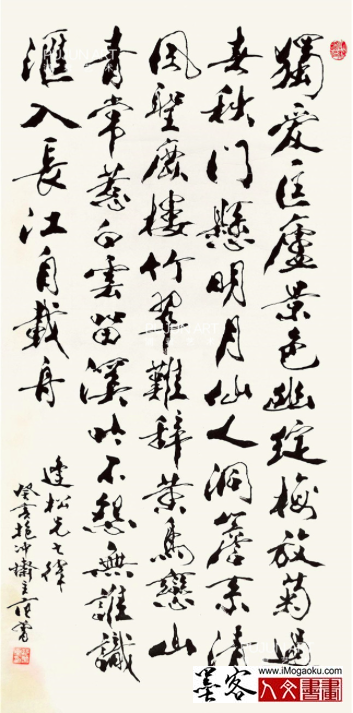 獨愛匡廬景色幽綻梅放菊過
春秋門懸明月仙人洞簷系清
風聖廬樓竹翠難辭黃鳥戀山
青常惹白雲留溪吟不怨無誰識
匯入長江自載舟
逢松先生
癸亥抱沖齋主范曾
www.iMogaoku.com
墨客
人文書畫